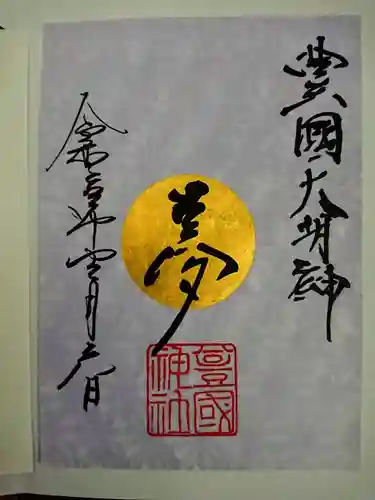 豊國大明神
夢
豊國
神社
令和年月六日